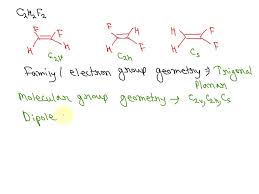 C₂H₂F₂
F F F H F
H H H F H F
C₂v C₂h Cₛ
Family / electron group geometry ⇒ Trigonal
Planar
Molecular group geometry → C₂v, C₂h, Cₛ
Dipole